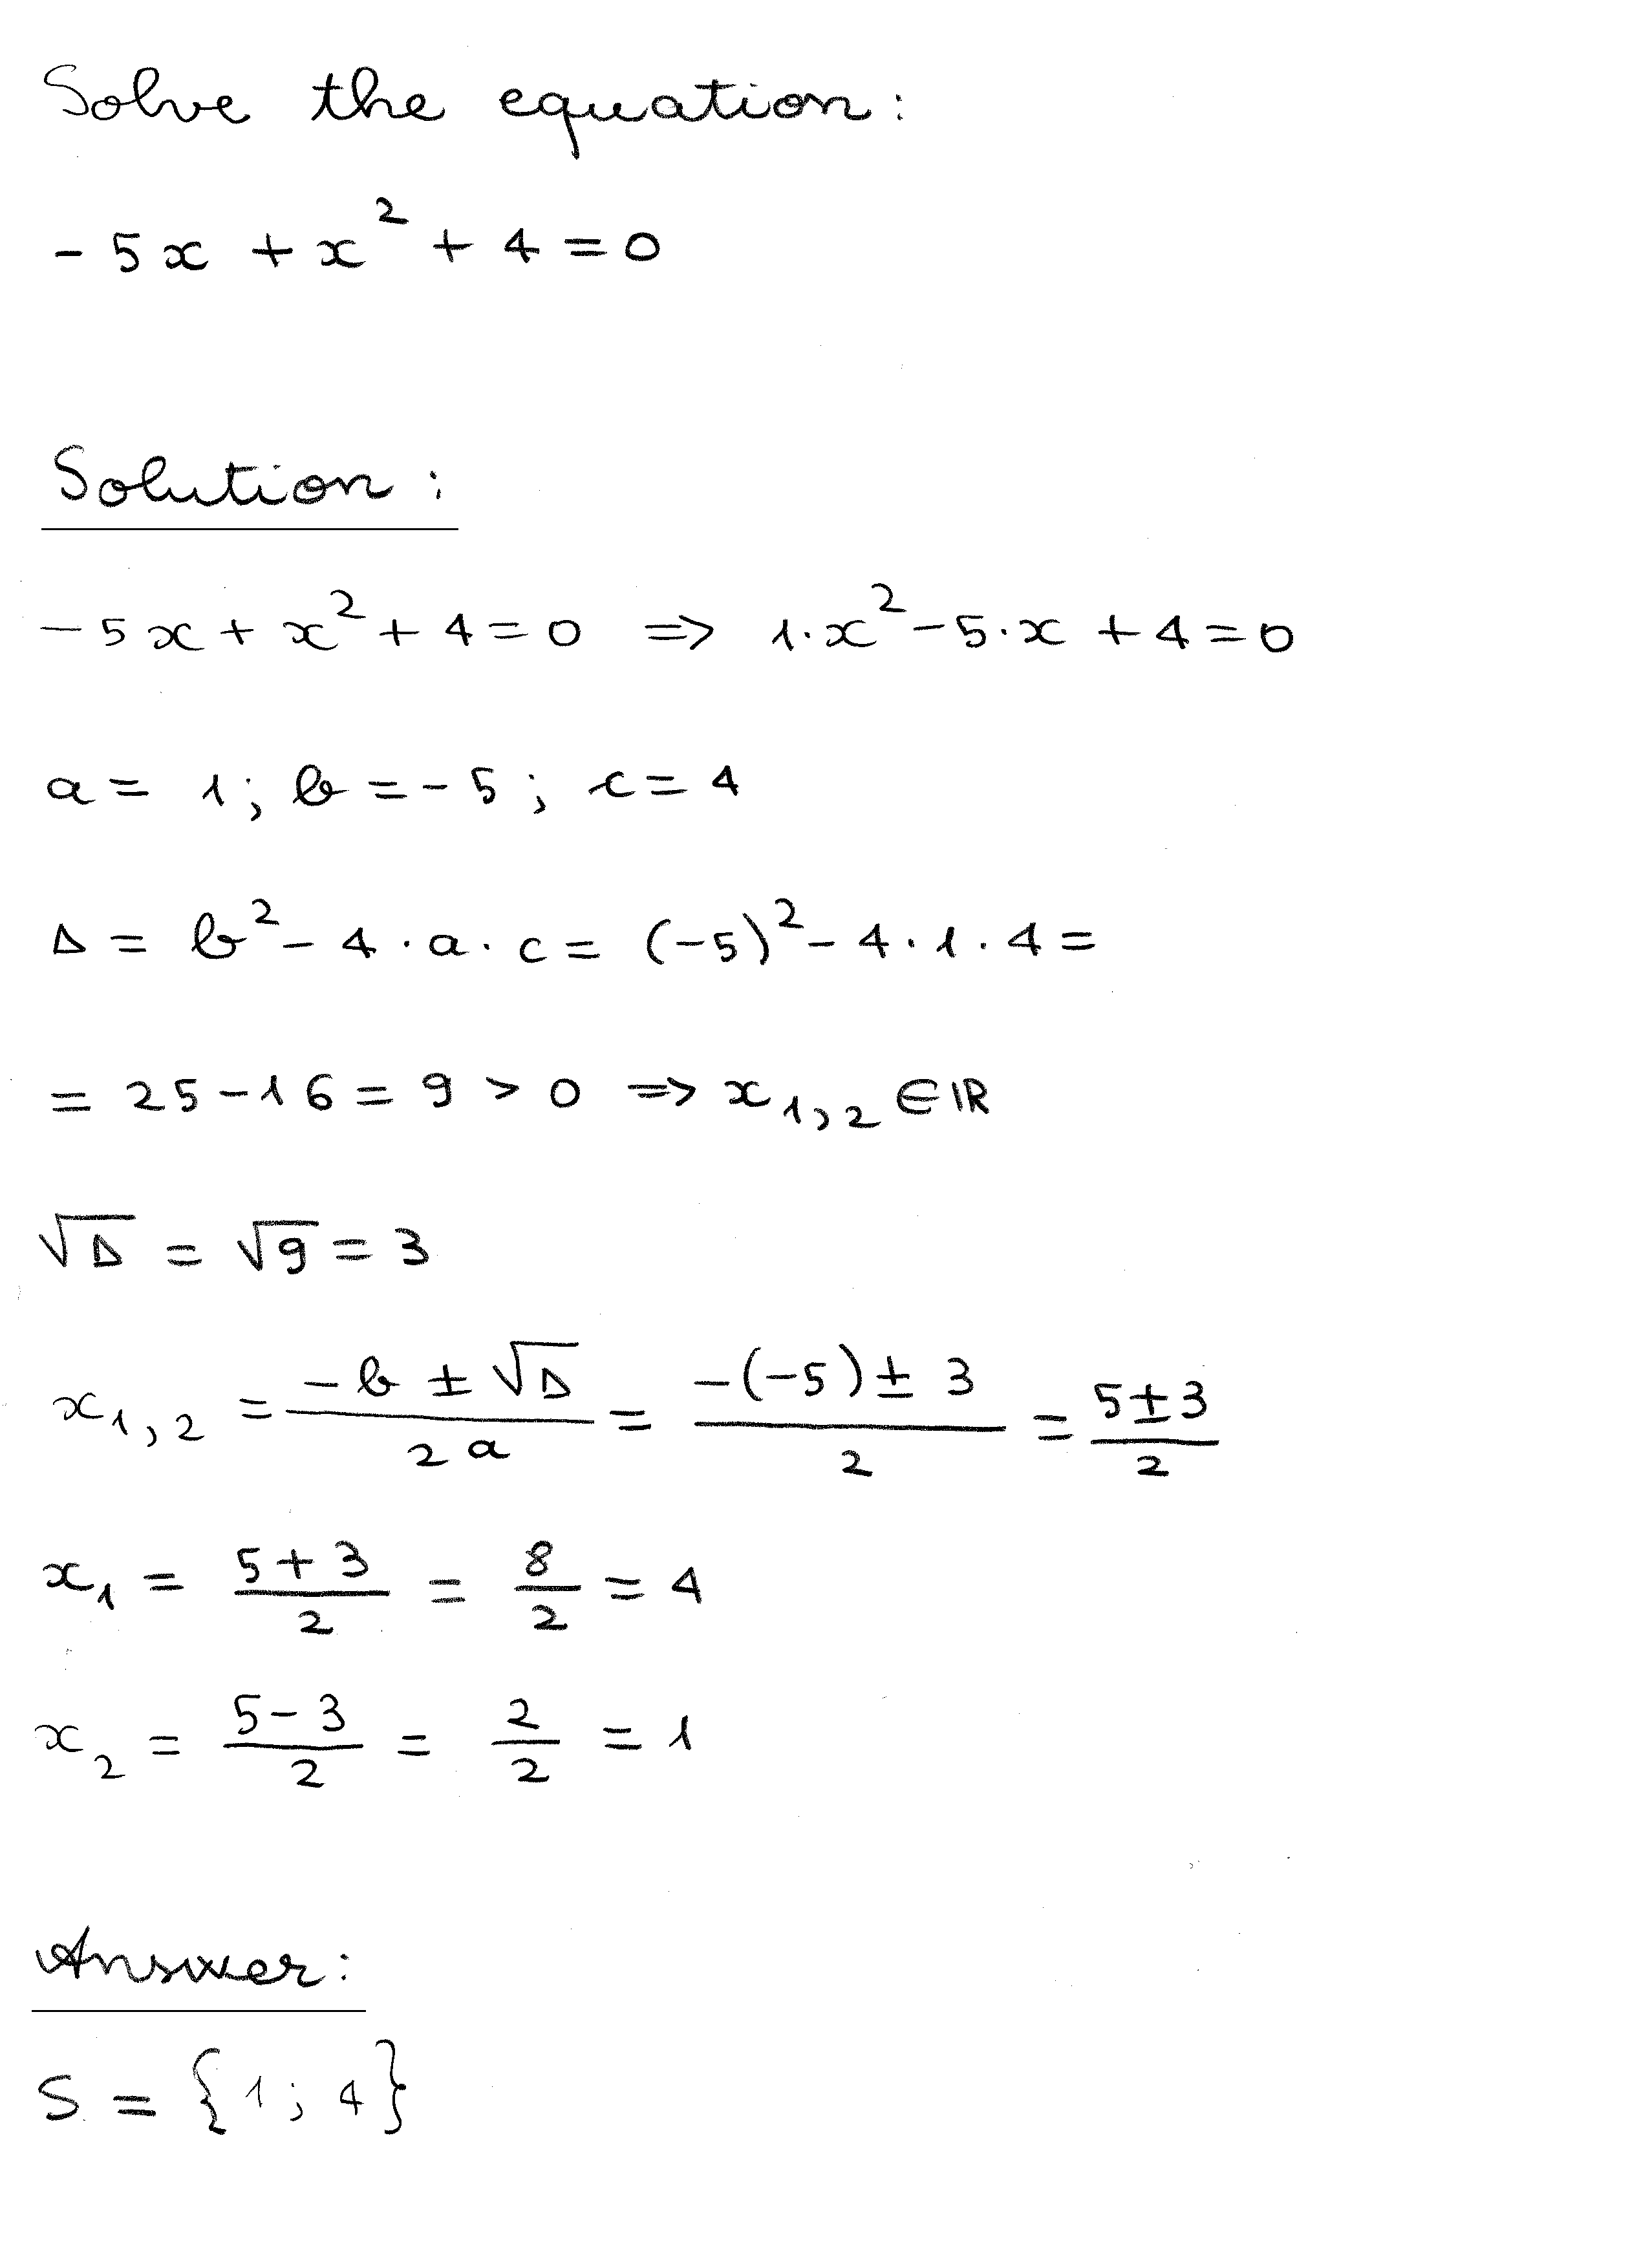 Solve the equation:
- 5x + x² + 4 = 0
Solution:
- 5x + x² + 4 = 0 ⇒ 1·x² - 5·x + 4 = 0
a = 1; b = - 5; c = 4
Δ = b² - 4·a·c = (-5)² - 4·1·4 =
= 25 - 16 = 9 > 0 ⇒ x₁,₂ ∈ ℝ
√Δ = √9 = 3
x₁,₂ = (-b ± √Δ)/(2a) = (-(-5) ± 3)/2 = (5 ± 3)/2
x₁ = (5 + 3)/2 = 8/2 = 4
x₂ = (5 - 3)/2 = 2/2 = 1
Answer:
S = {1; 4}